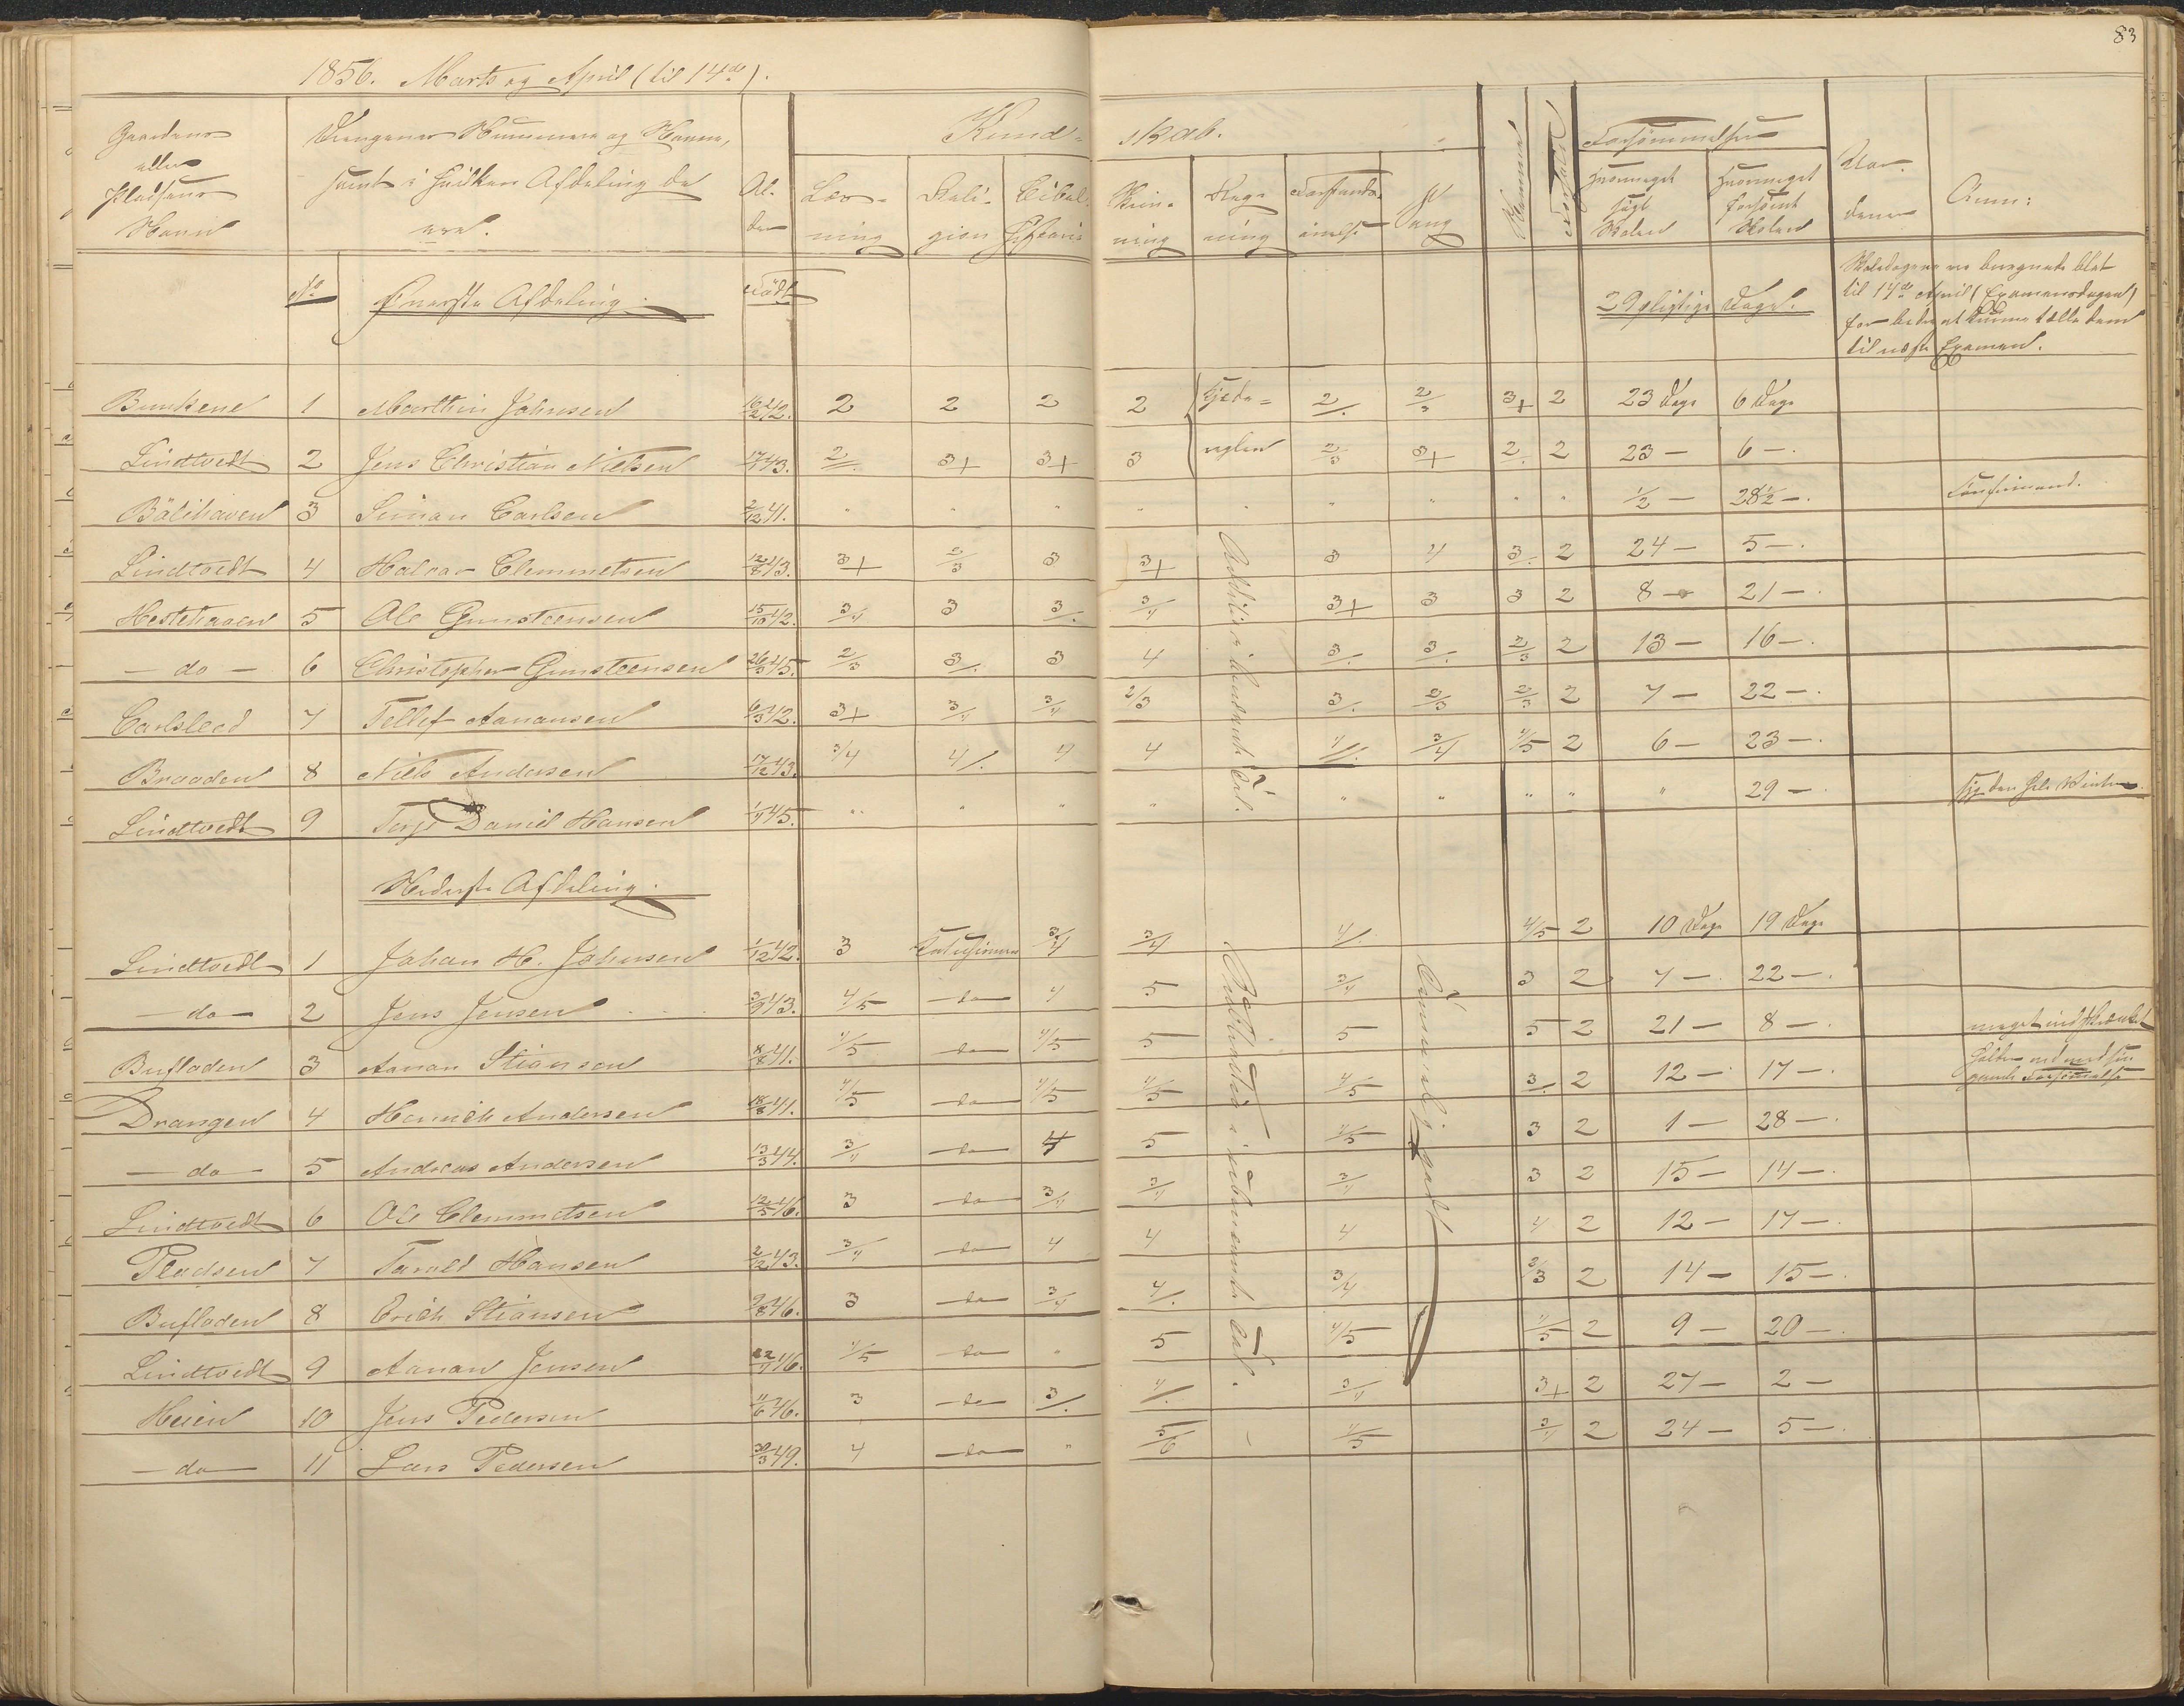 83
1856. Marts og April (til 14de).
Gaardens eller Pladsens Navn
Drengenes Nummere og Navne, samt i hvilken Afdeling de ere.
Al-der
Kund-skab.
Læs-ning
Reli-gion
Bibel-historie
Skriv-ning
Reg-ning
Forstands-øvelse
Sang
Nummer
Forhold
Forsømmelser
Hvormeget søgt Skolen
Hvormeget forsømt Skolen
Anm:
No
Øverste Afdeling.
Født
29 pligtige Dage.
Skoledagene ere beregnede blot
til 14de April (Examensdagen)
for bedre at kunne tælle dem
til næste Examen.
Bunkene 1 Marthin Johnsen 16/2 42. 2 2 2 2 Kjede= 2/. 2/3 3+ 2 23 Dage 6 Dage
Lindtvedt 2 Jens Christian Nielsen 17/1 43. 2/. 3+ 3+ 3 reglen 2/3 3+ 2/. 2 23 — 6 —.
Bälihaven 3 Siman Carlsen 2/12 41. " " " " " " " " 1/2 — 28 1/2 —. Confirmand.
Lindtvedt 4 Halvor Clemmetsen 12/8 43. 3+ 2/3 3 3+ 3 4 3/. 2 24 — 5 —.
Hestehaven 5 Ole Gunsteensen 15/10 42. 3/4 3 3/. 3/4 3+ 3 3 2 8 — 21 —.
— do — 6 Christopher Gunsteensen 26/3 45. 2/3 3/. 3 4 3/. 3/. 2/3 2 13 — 16 —.
Carlsled 7 Tellef Aanansen 6/3 42. 3+ 3/4 3/4 2/3 3/. 2/3 2/3 2 7 — 22 —.
Braaden 8 Niels Andersen 17/12 43. 3/4 4/. 4 4 4/. 3/4 4/5 2 6 — 23 —.
Lindtvedt 9 Terje Daniel Hansen 1/4 45. " " " " " " " " " 29 —. syg den hele Vinter.
Addition i benævnte Tal.
Nederste Afdeling.
Lindtvedt 1 Johan H. Johnsen 1/12 42. 3 3/4 3/4 4/. 4/5 2 10 Dage 19 Dage
— do — 2 Jens Jensen 3/9 43. 4/5 — do 4 5 3/4 3 2 7 —. 22 —.
Bufladen 3 Aanon Stiansen 8/8 41. 4/5 — do 4/5 5 5 5 2 21 — 8 —. meget indskrænket
Drangen 4 Henrich Andersen 18/8 41. 4/5 — do 4/5 4/5 4/5 3/. 2 12 — 17 —.
— do — 5 Andreas Andersen 13/3 44. 3/4 — do 4 5 4/5 3 2 1 — 28 —.
Lindtvedt 6 Ole Clemmetsen 12/5 46. 3 — do 3/4 3/4 3/4 3 2 15 — 14 —.
Pladsen 7 Tarald Hansen 2/12 43. 3/4 — do 4 4 4 4 2 12 — 17 —.
Bufladen 8 Erich Stiansen 9/8 46. 3 — do 3/4 4/. 3/4 2/3 2 14 — 15 —.
Lindtvedt 9 Aanan Jensen 22/4 46. 4/5 — do " 5 4/5 4/5 2 9 — 20 —.
Heien 10 Jens Pedersen 11/6 46. 3 — do 3/. 4/. 3/4 3+ 2 27 — 2 —
— do — 11 Lars Pedersen 30/3 49. 4 — do " 5/6 - 4/5 3/4 2 24 — 5 —.
Addition i ubenævnte Tal.